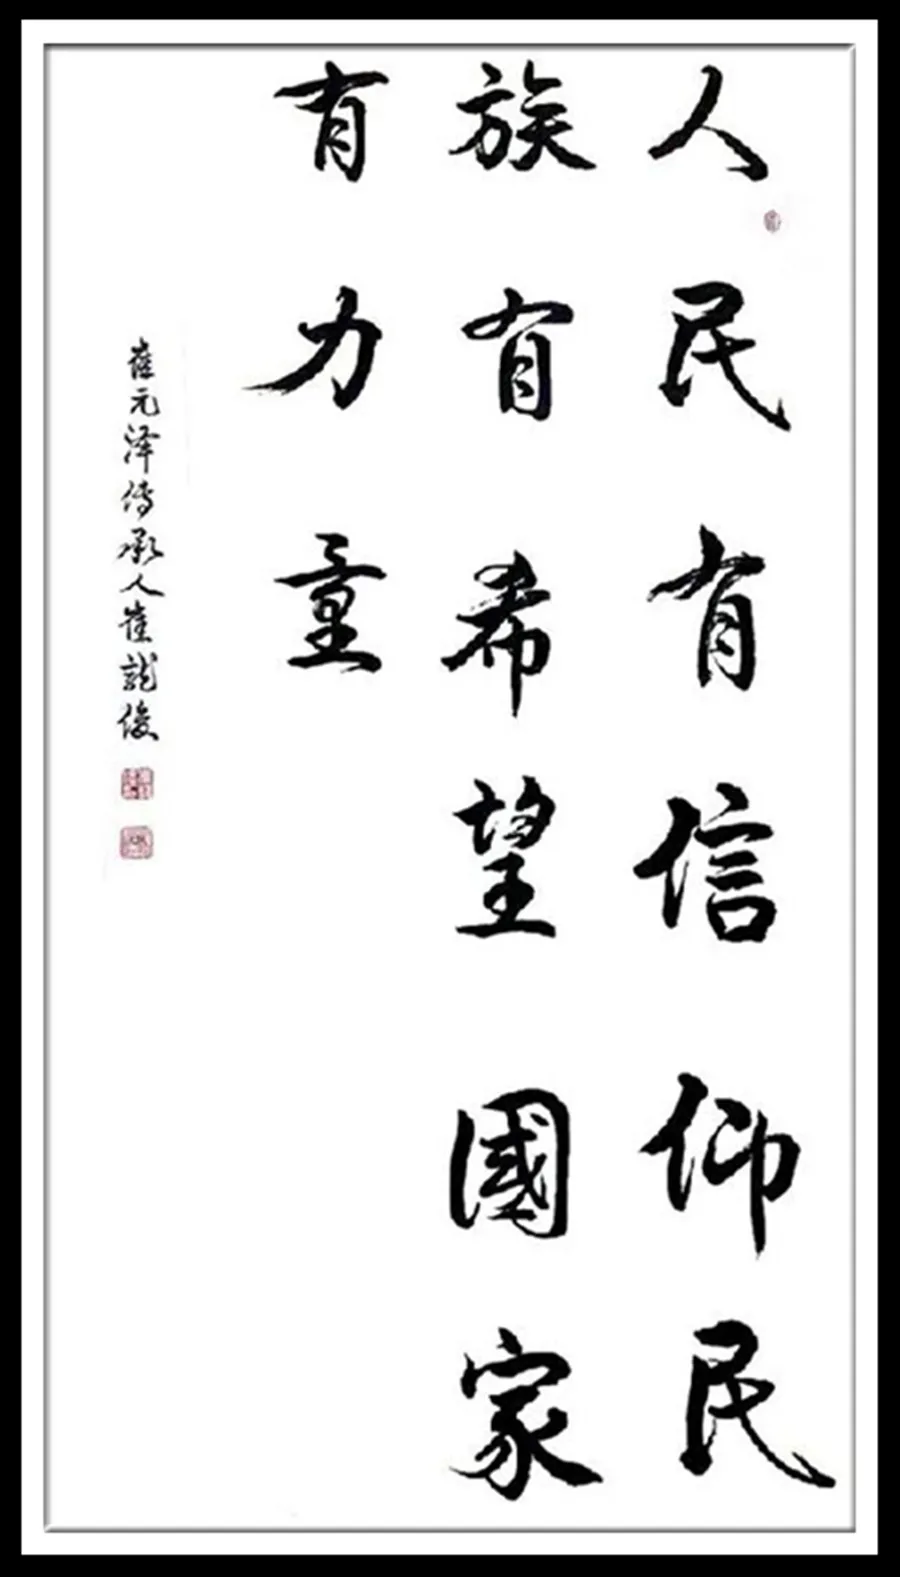 人民有信仰民
族有希望國家
有力量
崔元泽傳承人崔龍俊